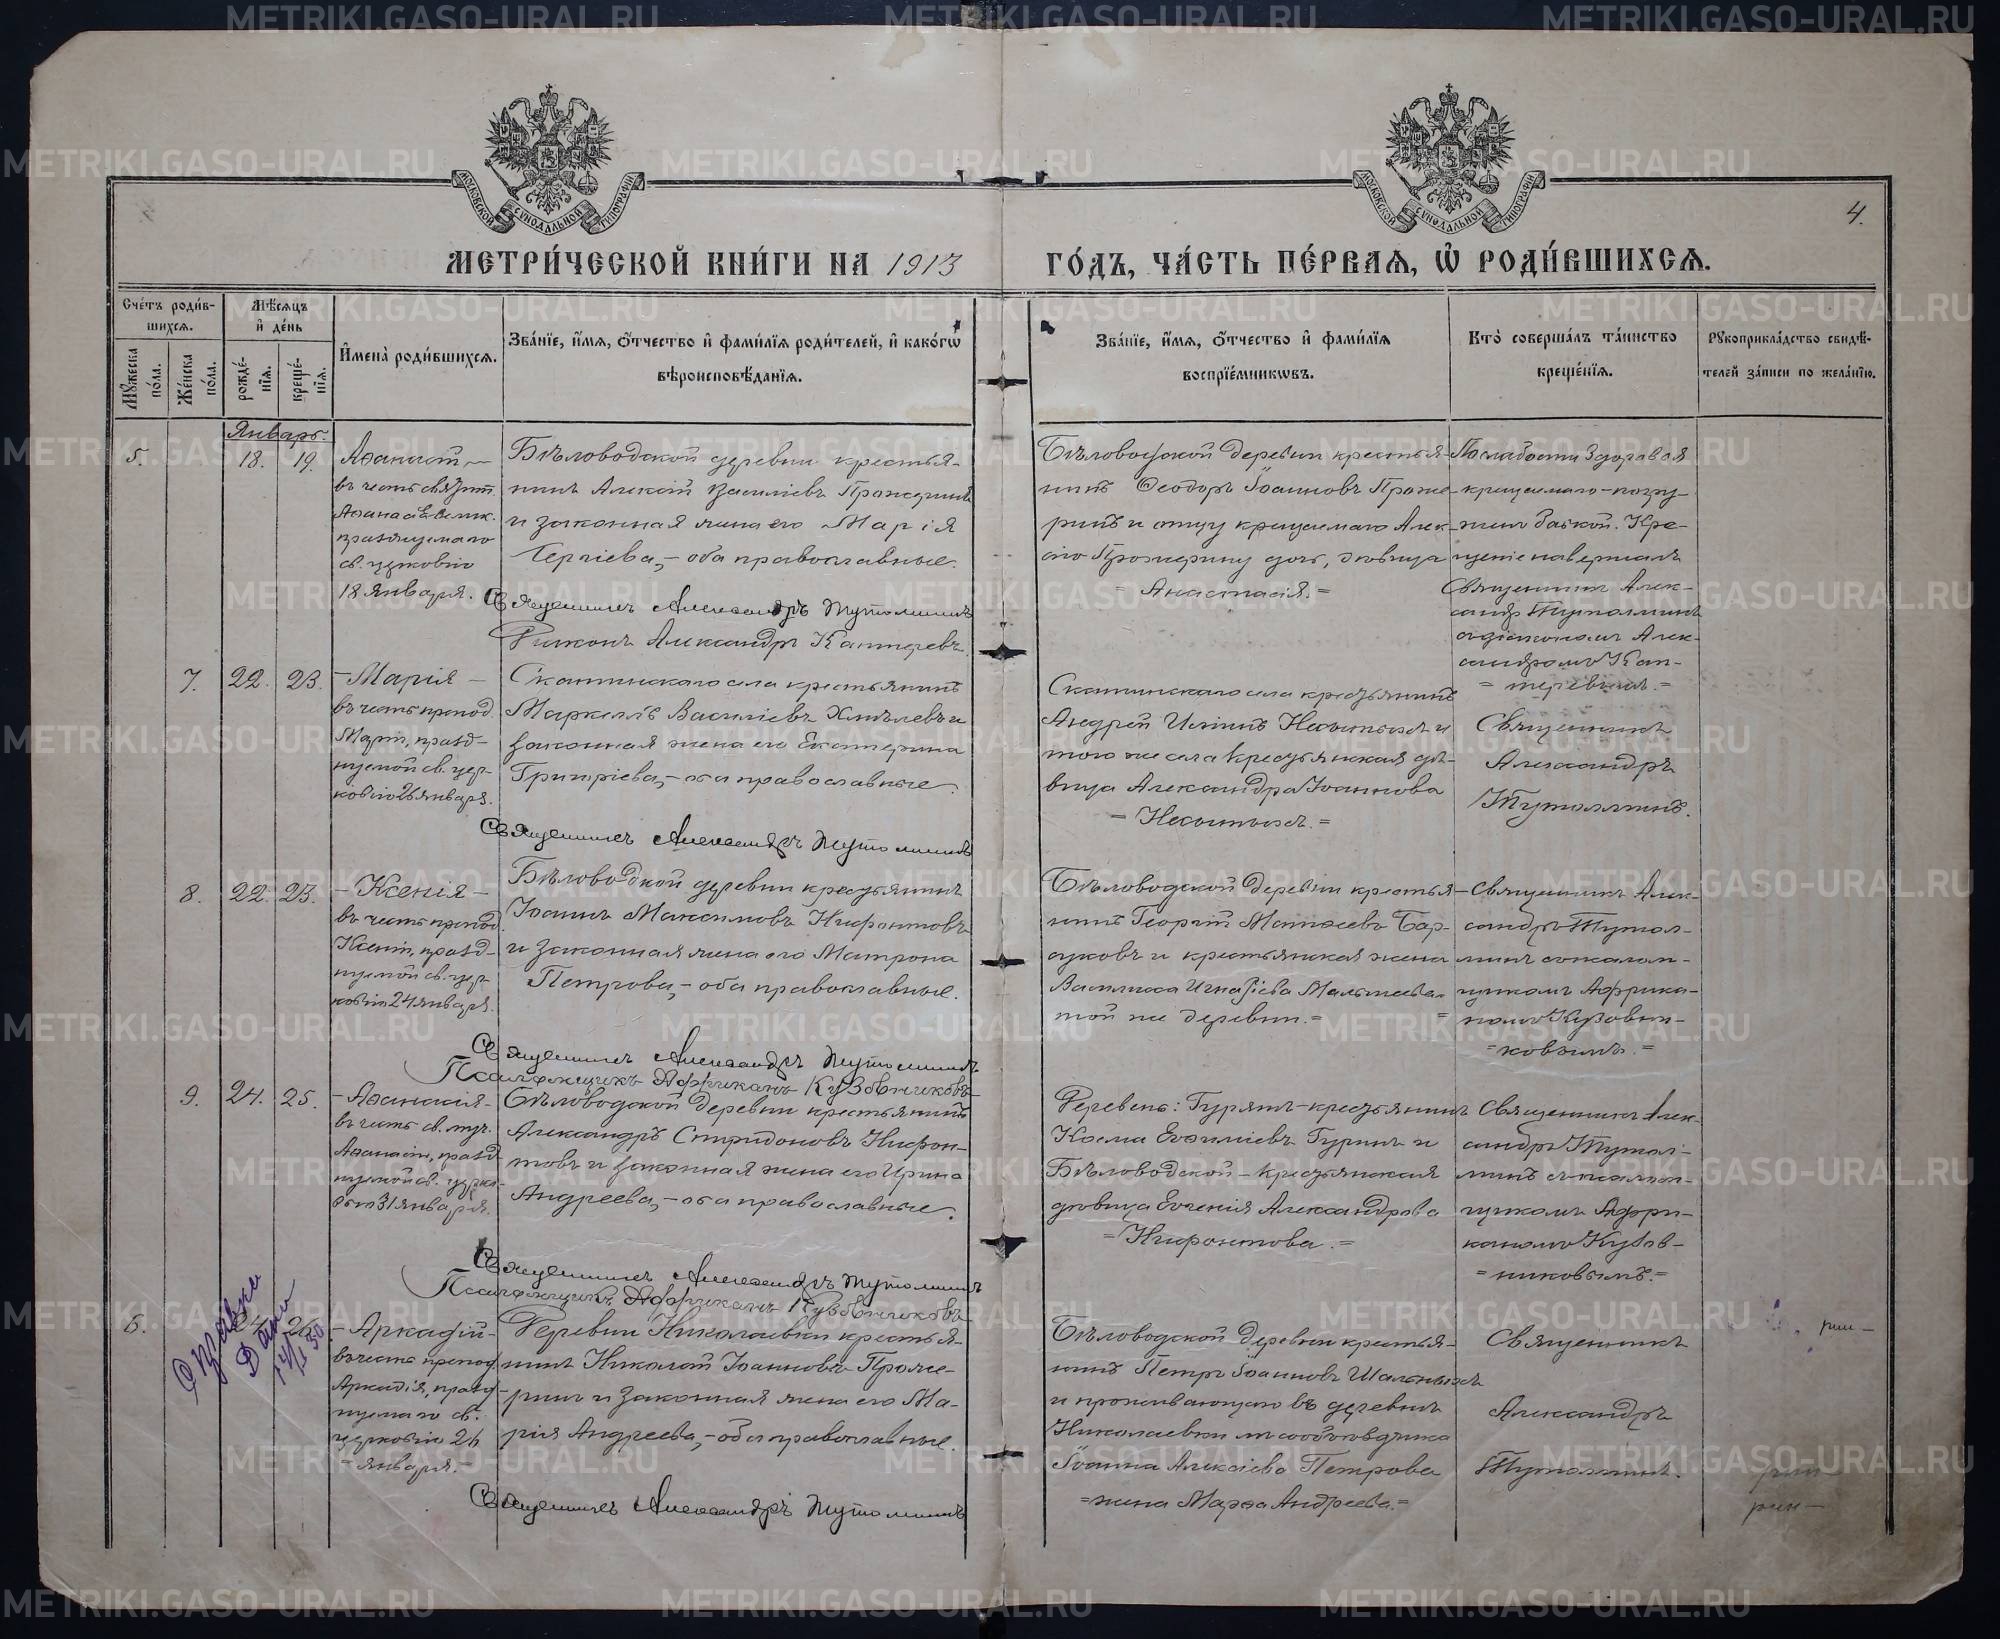 METRIKI.GASO-URAL.RU
МОСКОВСКОЙ СУНОДАЛЬНОЙ ТИПОГРАФИИ
МОСКОВСКОЙ СУНОДАЛЬНОЙ ТИПОГРАФИИ
4.
МЕТРИ́ЧЕСКОЙ КНИ́ГИ НА 1913 ГО́ДЪ, ЧА́СТЬ ПЕ́РВАѦ, Ѡ҆ РОДИ́ВШИХСѦ.
Сче́тъ роди́в-
шихсѧ.
Мꙋ́жеска по́ла.
Же́нска по́ла.
Мѣ́сѧцъ
и҆ де́нь
рожде́-
нїѧ.
креще́-
нїѧ.
И҆мена̀ роди́вшихсѧ.
Зва́нїе, и҆́мѧ, ѻ҆́тчество и҆ фами́лїѧ роди́телей, и҆ како́гѡ
вѣроисповѣ́данїѧ.
Зва́нїе, и҆́мѧ, ѻ҆́тчество и҆ фами́лїѧ
воспрїе́мникѡвъ.
Кто̀ соверша́лъ та́инство
креще́нїѧ.
Рꙋкоприкла́дство свидѣ́-
телей за́писи по жела́нїю.
Январь.
5.
18.
19.
Аѳанасій
въ честь святит.
Аѳанасія Велик.
празднуемаго
св. церковію
18 января.
Бѣловодской деревни крестья-
нинъ Алексій Василіевъ Прожеринъ
и законная жена его Марія
Сергіева, – оба православные.
Священникъ Александръ Тутолминъ
Діаконъ Александръ Каптеревъ
Бѣловодской деревни крестья-
нинъ Ѳеодоръ Іоанновъ Проже-
ринъ и отцу крещаемаго Алек-
сію Прожерину дочь, дѣвица
= Анастасія. =
По слабости здоровья
крещаемаго – погру-
женъ бабкой. Кре-
щеніе
Священникъ Алек-
сандръ Тутолминъ
съ діакономъ Алек-
сандромъ Кап-
= теревымъ. =
7.
22.
23.
– Марія –
въ честь препод.
Маріи, празд-
нуемой св. цер-
ковію 26 января.
Скатинскаго села крестьянинъ
Маркеллъ Василіевъ Хмѣлевъ и
законная жена его Екатерина
Григоріева, – оба православные.
Священникъ Александръ Тутолминъ
Скатинскаго села крестьянинъ
Андрей
того же села крестьянская дѣ-
вица Александра Іоаннова
Священникъ
Александръ
Тутолминъ.
8.
22.
23.
– Ксенія –
въ честь препод.
Ксеніи, празд-
нуемой св. цер-
ковію 24 января.
Бѣловодской деревни крестьянинъ
Іоаннъ Максимовъ Нифонтовъ
и законная жена его Матрона
Петрова, – оба православные.
Священникъ Александръ Тутолминъ
Псаломщикъ Африканъ Кузовниковъ
Бѣловодской деревни крестья-
нинъ Георгій Матѳеевъ Бар-
суковъ и крестьянская жена
Василисса Игнатіева Мальцева
той же деревни. =
Священникъ Алек-
сандръ Тутол-
минъ съ псалом-
щикомъ Африка-
номъ Кузовни-
= ковымъ. =
9.
24.
25.
– Аѳанасія –
въ честь св. муч.
Аѳанасіи, празд-
нуемой св. церко-
вью 31 января.
Бѣловодской деревни крестьянинъ
Александръ Спиридоновъ Нифон-
товъ и законная жена его Ирина
Андреева, – оба православные.
Священникъ Александръ Тутолминъ
Псаломщикъ Африканъ Кузовниковъ
Деревень: – крестьянинъ
Косма Евѳиміевъ Гуринъ и
Бѣловодской – крестьянская
дѣвица Евгенія Александрова
= Нифонтова. =
Священникъ Алек-
сандръ Тутол-
минъ съ псалом-
щикомъ Афри-
каномъ Кузов-
= никовымъ. =
6.
24
26.
Справки
Дано
– Аркадій –
въ честь препод.
Аркадія, празд-
нуемаго св.
церковію 26
– января. –
Деревни Николаевки крестья-
нинъ Николай Іоанновъ Проже-
ринъ и законная жена его Ма-
рія Андреева, – оба православные.
Священникъ Александръ Тутолминъ
Бѣловодской деревни крестья-
нинъ Петръ Іоанновъ
и проживающаго въ деревнѣ
Николаевки
Іоанна Алексіева Петрова
= жена Марѳа Андреева. =
Священникъ
Александръ
Тутолминъ.